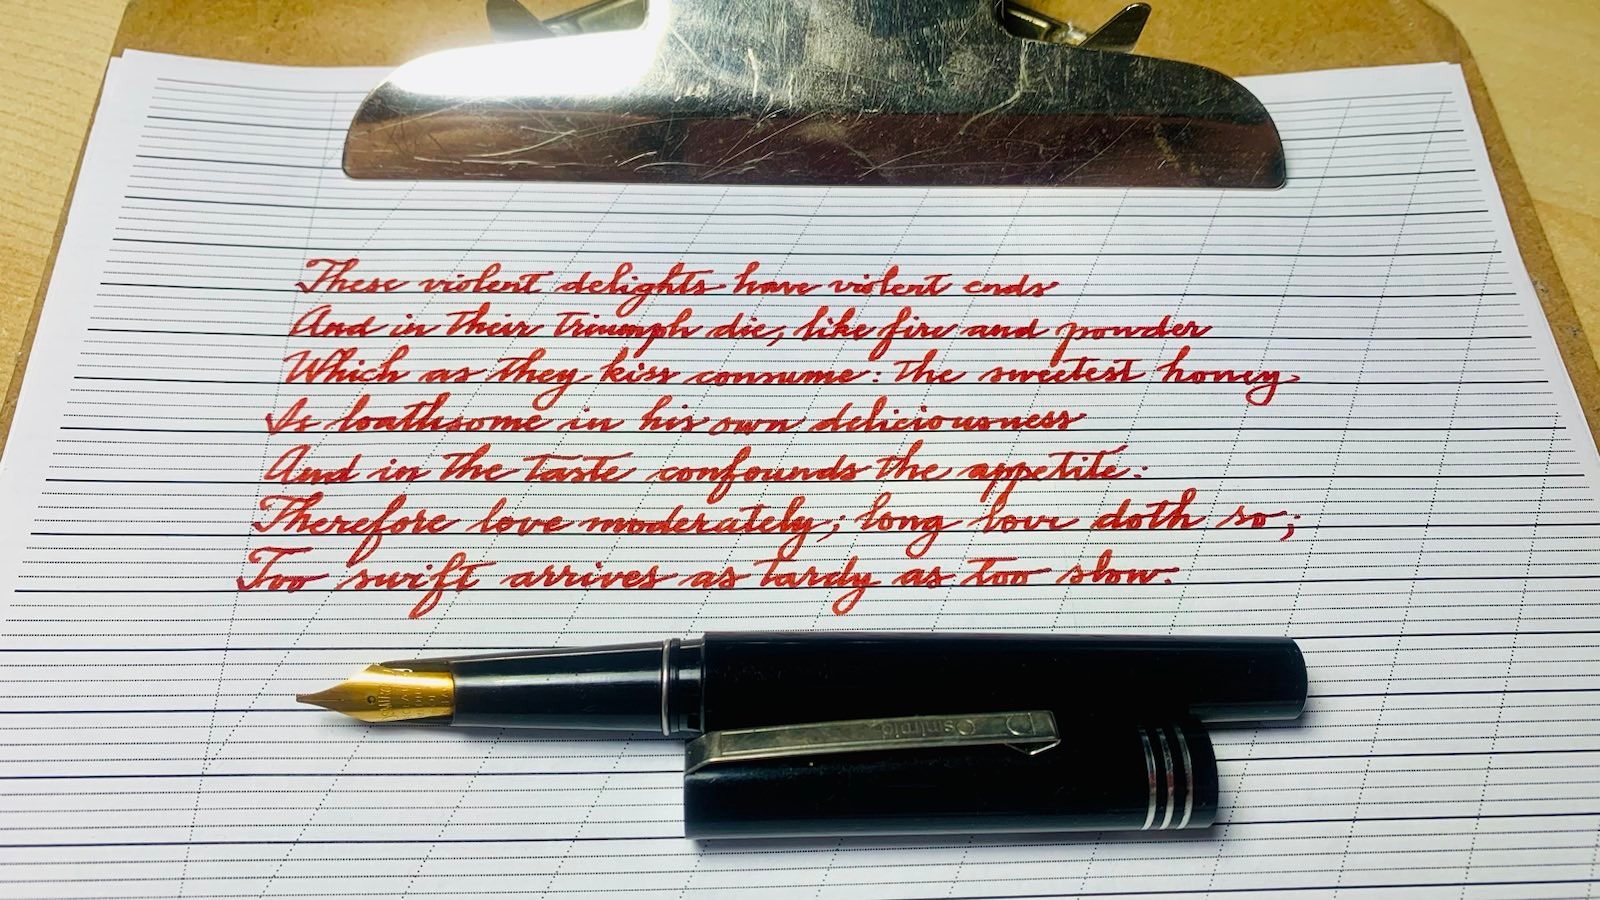 These violent delights have violent ends
And in their triumph die, like fire and powder
Which as they kiss consume: the sweetest honey
Is loathsome in his own deliciousness
And in the taste confounds the appetite:
Therefore love moderately; long love doth so;
Too swift arrives as tardy as too slow.
Osmiroid